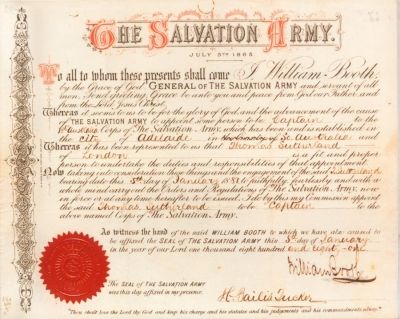 THE SALVATION ARMY.
JULY 5TH 1865
To all to whom these presents shall come I William Booth
by the Grace of God GENERAL OF THE SALVATION ARMY and servant of all
men, Send greeting, Grace be unto you and peace from God our Father, and
from the Lord Jesus Christ.
Whereas it seems to us to be for the glory of God, and the advancement of the cause
of THE SALVATION ARMY to appoint some person to be Captain to the
Corps of The Salvation Army, which has been and is established in
the City Adelaide in So. Australia And
Whereas it has been represented to us that Thomas Sutherland
of London is a fit and proper
person to undertake the duties and responsibilities of that appointment
Now taking into consideration those things and the engagement of the said Sutherland
bearing date this 5th day of January 1881 faithfully, fearlessly, and with a
whole mind carry out the Orders and Regulations of The Salvation Army, now
in force or at any time hereafter to be issued. I do by this my commission appoint
the said Thomas Sutherland to be Captain to the
above named Corps of The Salvation Army.
As witness the hand of the said WILLIAM BOOTH to which we have also caused to
be affixed the SEAL OF THE SALVATION ARMY this 5th day of January
in the year of our Lord one thousand eight hundred and eighty-one
William Booth
The SEAL OF THE SALVATION ARMY
was this day affixed in my presence.
"Thou shalt love the Lord thy God and keep his charge and his statutes and his judgments and his commandments alway."